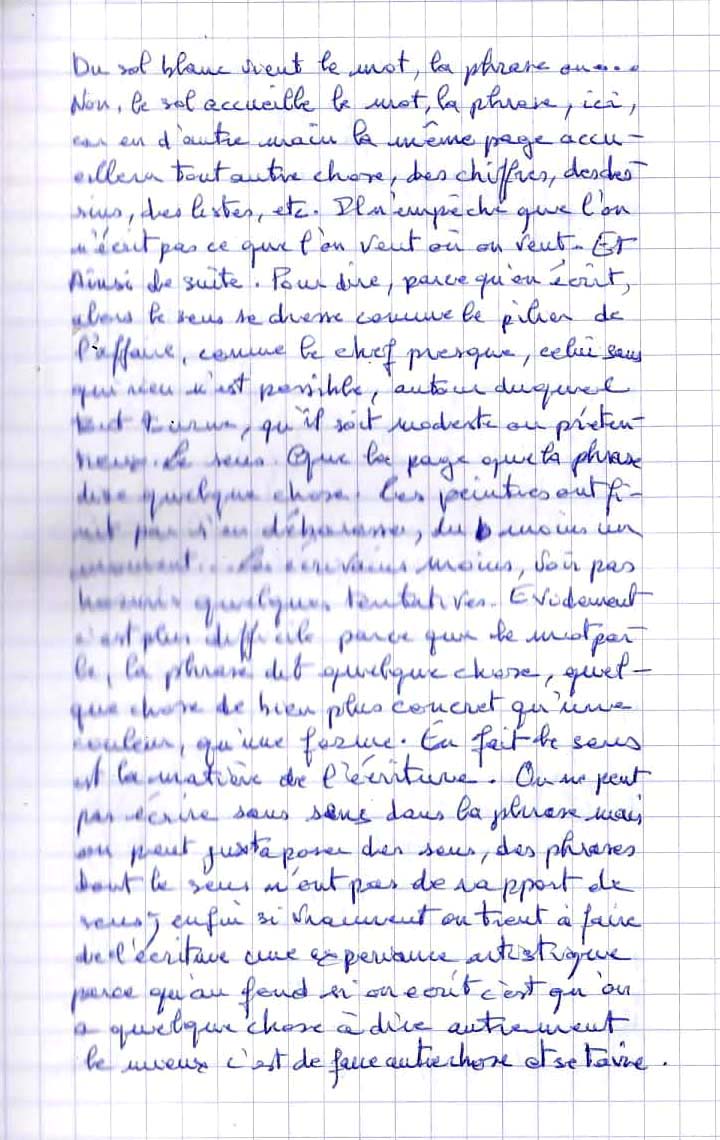 Du sol blanc vient le mot, la phrase ou....
Non, le sol accueille le mot, la phrase, ici,
car en d'autre main la même page accu-
eillera tout autre chose, des chiffres, des des-
sins, des listes, etc. Il n'empêche que l'on
n'écrit pas ce que l'on veut où on veut. Et
Ainsi de suite. Pour dire, parce qu'on écrit,
alors le sens se dresse comme le pilier de
l'affaire, comme le chef presque, celui sans
qui rien n'est possible, autour duquel
tout tourne, qu'il soit modeste ou préten-
tieux. Le sens. Que la page que la phrase
dise quelque chose. Les peintres ont fi-
nit par s'en débarasser, du moins un
moment. Les écrivains moins, voir pas
hormis quelques tentatives. Evidement
c'est plus difficile parce que le mot par-
le, la phrase dit quelque chose, quel-
que chose de bien plus concret qu'une
couleur, qu'une forme. En fait le sens
est la matière de l'écriture. On ne peut
pas écrire sans sens dans la phrase mais
on peut juxtaposer des sens, des phrases
dont le sens n'ont pas de rapport de
sens, enfin si vraiment on tient à faire
de l'écriture une experience artistique
parce qu'au fond si on écrit c'est qu'on
a quelque chose à dire autrement
le mieux c'est de faire autre chose et se taire.